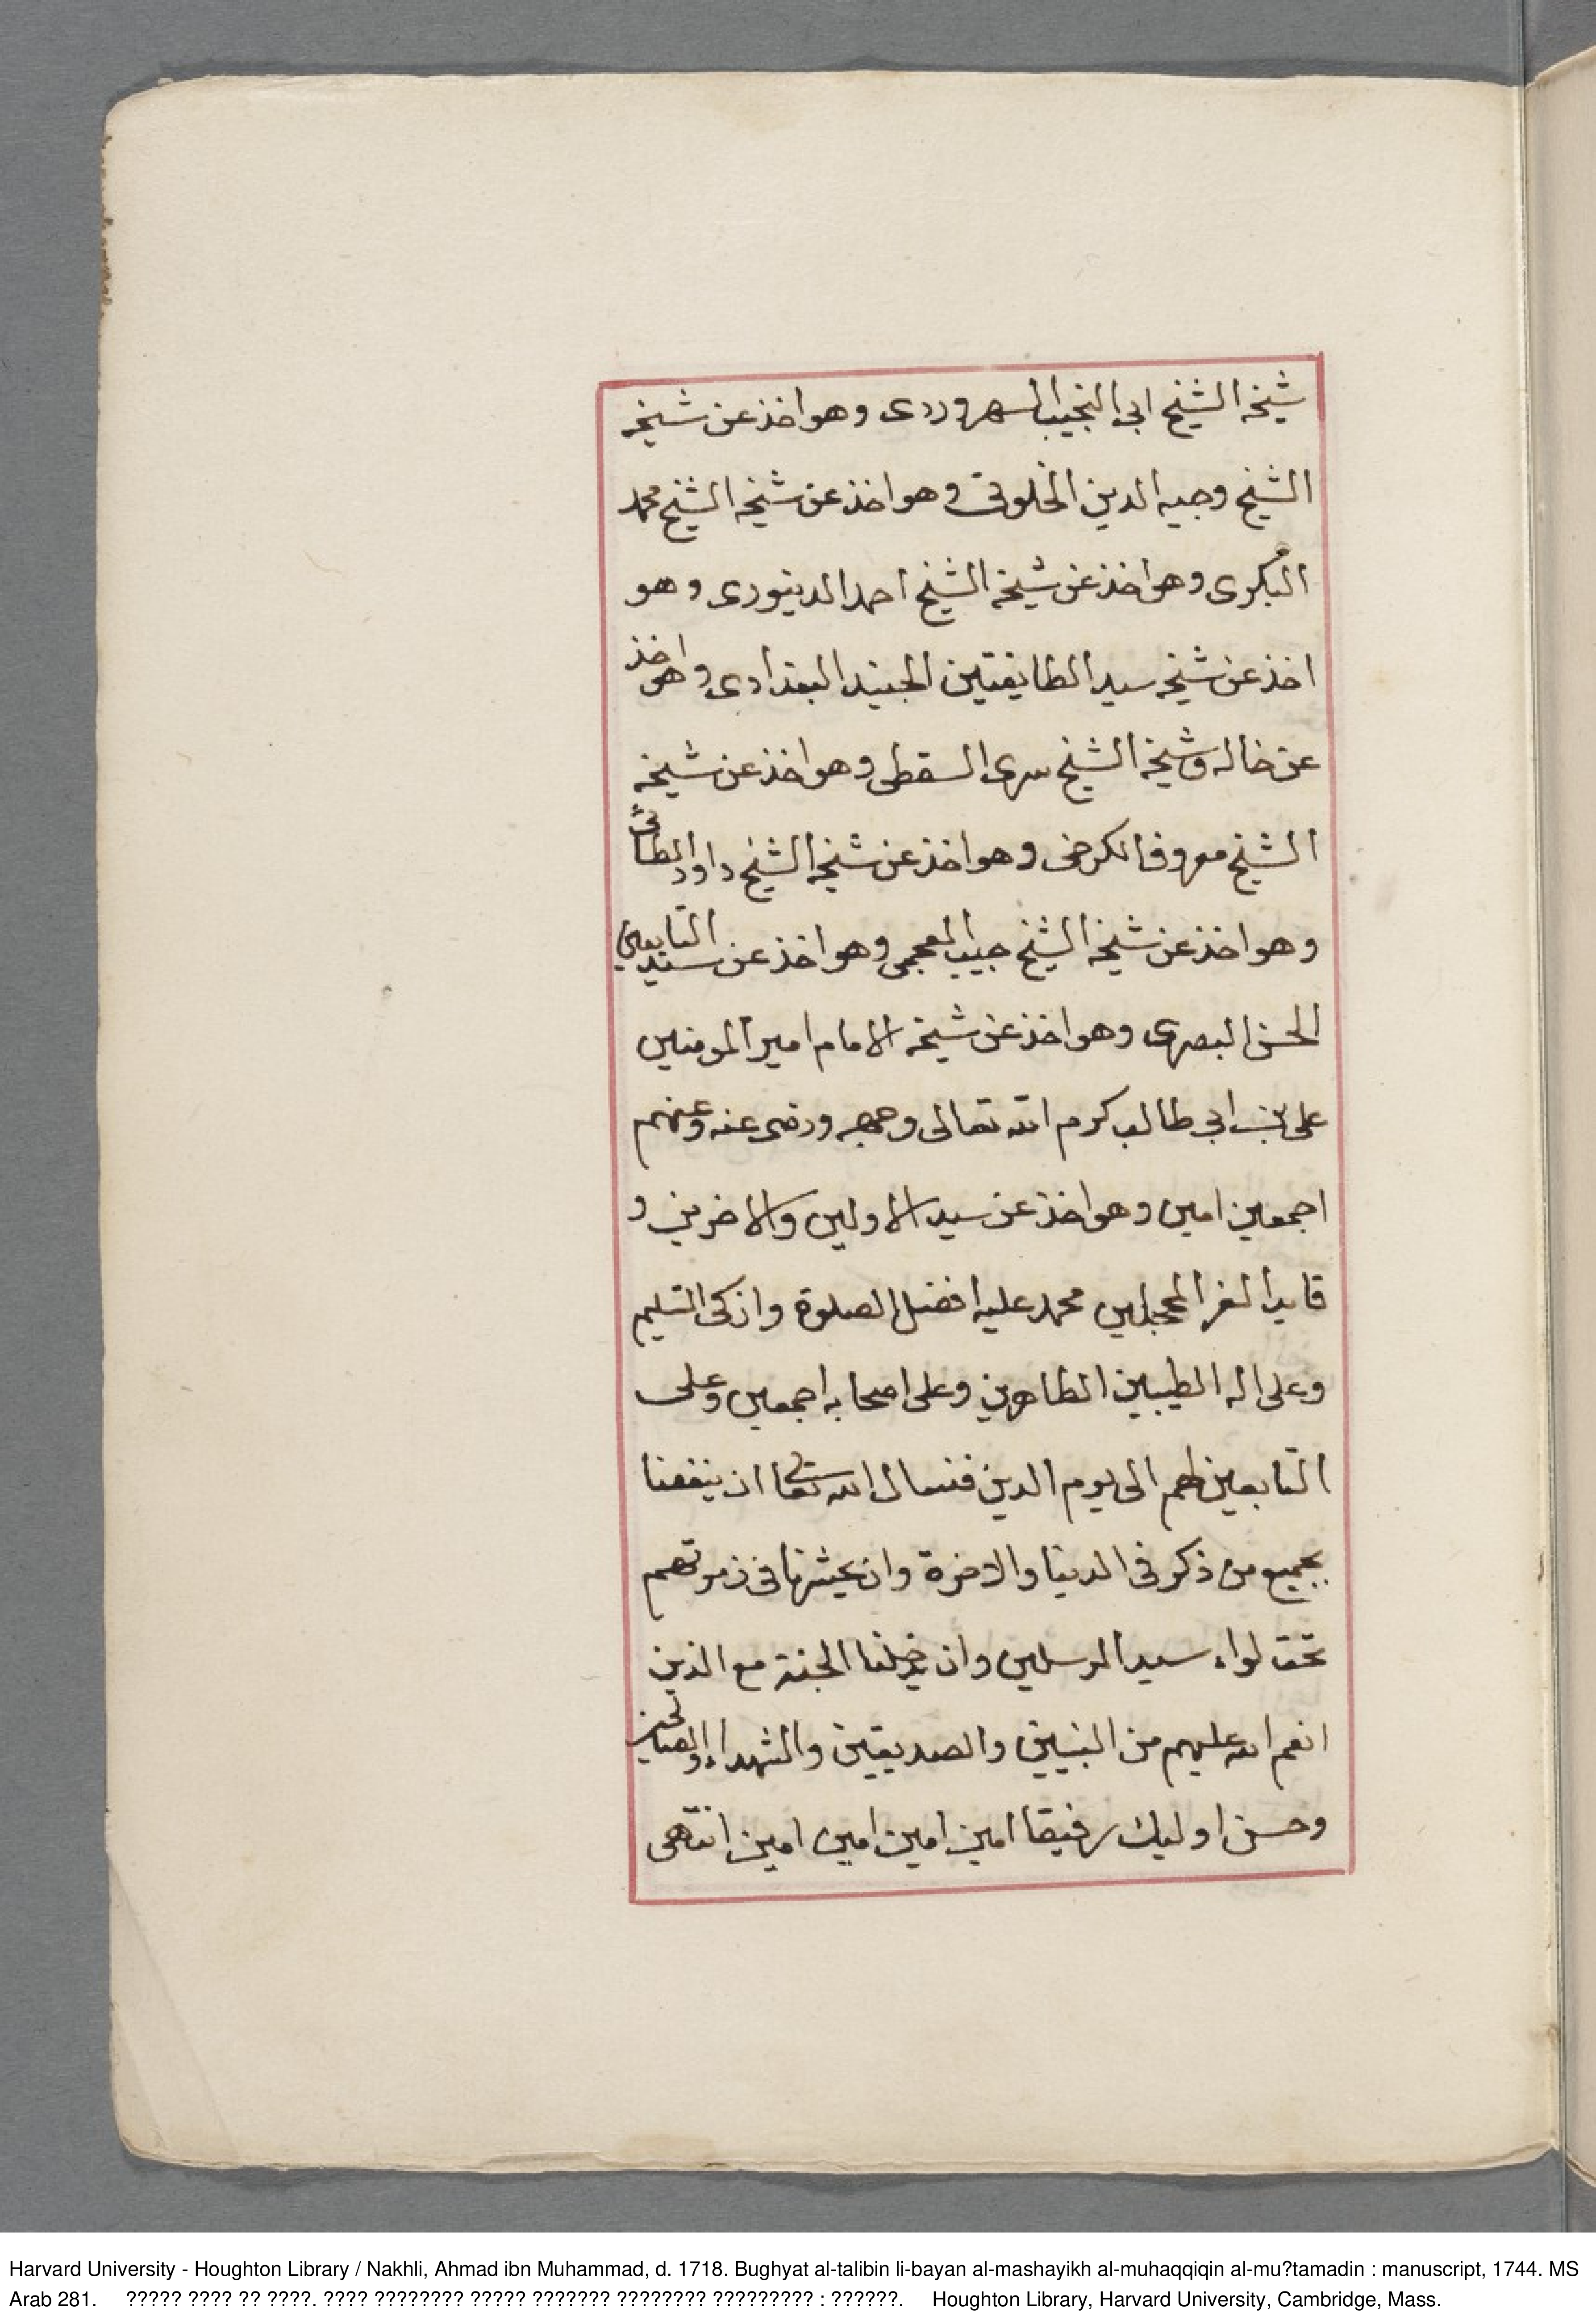 شيخه الشيخ ابى النجيب السهروردى وهو اخذ عن شيخه
الشيخ وجيه الدين الخلوتى وهو اخذ عن شيخه الشيخ محمد
البكرى وهو اخذ عن شيخه الشيخ احمد الدينورى وهو
اخذ عن شيخه سيد الطايفتين الجنيد البغدادى وهو اخذ
عن خاله وشيخه الشيخ سرى السقطى وهو اخذ عن شيخه
الشيخ معروف الكرخى وهو اخذ عن شيخه الشيخ داود الطائى
وهو اخذ عن شيخه الشيخ حبيب العجمى وهو اخذ عن سيد التابعين
الحسن البصرى وهو اخذ عن شيخه الامام امير المومنين
على بن ابى طالب كرم الله تعالى وجهه ورضى عنه وعنهم
اجمعين امين وهو اخذ عن سيد الاولين والاخرين و
قايد الغر المحجلين محمد عليه افضل الصلوة وازكى التسليم
وعلى اله الطيبين الطاهرين وعلى اصحابه اجمعين وعلى
التابعين لهم الى يوم الدين فنسال الله تعالى ان ينفعنا
بجميع من ذكر فى الدينا والاخرة وان يحشرنا فى زمرتهم
تحت لواء سيد المرسلين وان يدخلنا الجنة مع الذين
انعم الله عليهم من النبيين والصديقين والشهداء والصالحين
وحسن اوليك رفيقا امين امين امين امين انتهى
Harvard University - Houghton Library / Nakhli, Ahmad ibn Muhammad, d. 1718. Bughyat al-talibin li-bayan al-mashayikh al-muhaqqiqin al-mu?tamadin : manuscript, 1744. MS
Arab 281. ????? ???? ?? ????. ???? ???????? ????? ??????? ???????? ????????? : ??????. Houghton Library, Harvard University, Cambridge, Mass.